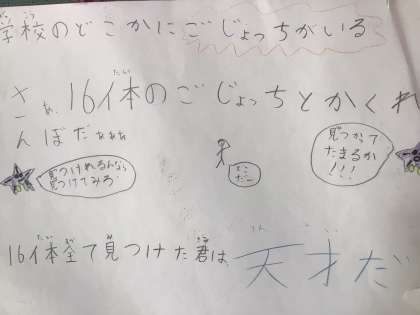 学校のどこかにごじょっちがいる
さぁ、16体のごじょっちとかくれ
んぼだぁぁぁ
見つけれるんなら
見つけてみろ
どこ
だー
見つかって
たまるか
!!!
16体全て見つけた君は天才だ